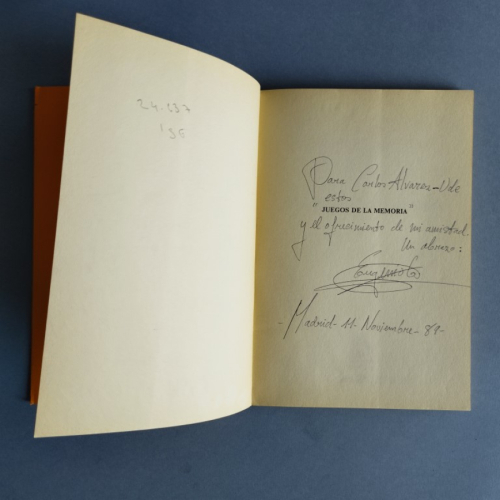 24.137
'3€
Para Carlos Alvarez-Ude
estos
" JUEGOS DE LA MEMORIA "
y el ofrecimiento de mi amistad.
Un abrazo:
- Madrid - 11 - Noviembre - 89 -